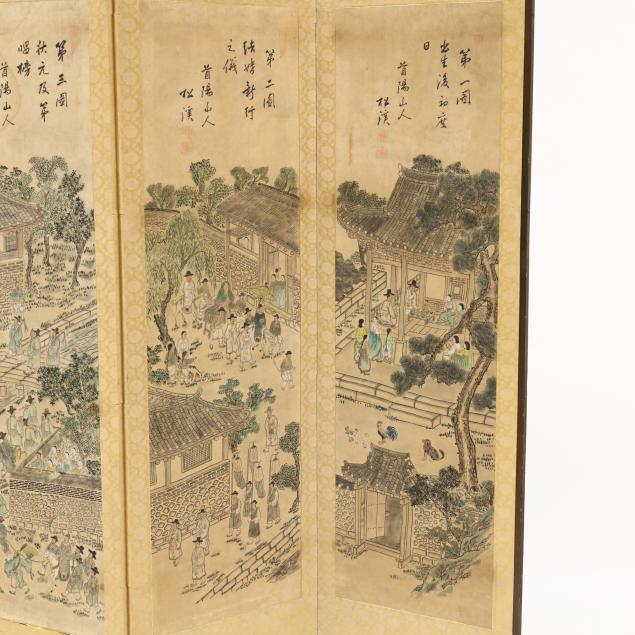 第一圖
出生後初度
日
首陽山人
松溪
第二圖
結婚新行
之儀
首陽山人
松溪
第三圖
狀元及第
唱榜
首陽山人